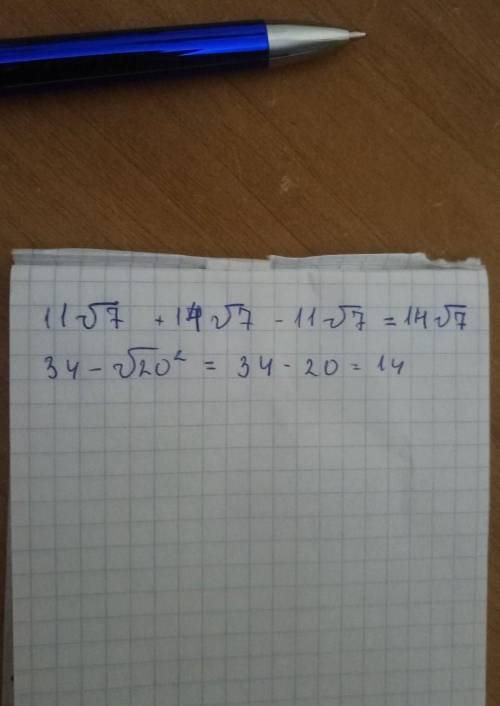 11√7 + 14√7 - 11√7 = 14√7
34 - √20² = 34 - 20 = 14